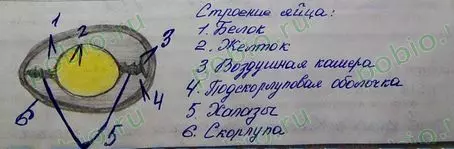 Строение яйца:
1. Белок
2. Желток
3 Воздушная камера
4. Подскорлуповая оболочка
5. Халазы
6. Скорлупа
1
2
3
4
5
6
bobio.ru